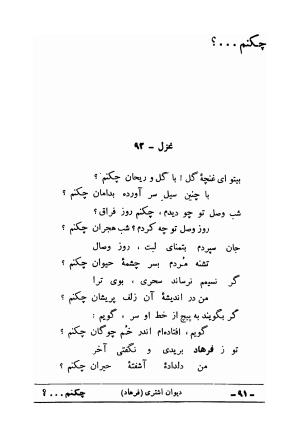 چکنم...؟
غزل - ۹۲
بیتو ای غنچهٔ گل! با گل و ریحان چکنم؟
با چنین سیل سر آورده بدامان چکنم؟
شب وصل تو چو دیدم، چکنم روز فراق؟
روز وصل تو چه کردم؟ شب هجران چکنم؟
جان سپردم بتمنای لبت، روز وصال
تشنه مُردم بسر چشمهٔ حیوان چکنم؟
گر نسیمم نرساند سحری، بوی ترا
من در اندیشهٔ آن زلف پریشان چکنم؟
گر بگویند به پیچ از خط او سر، گویم:
گویم، افتاده‌ام اندر خَم چوگان چکنم؟
تو ز فرهاد بریدی و نگفتی آخر
من دلدادهٔ آشفتهٔ حیران چکنم؟
-۹۱-
دیوان اشتری (فرهاد)
چکنم...؟